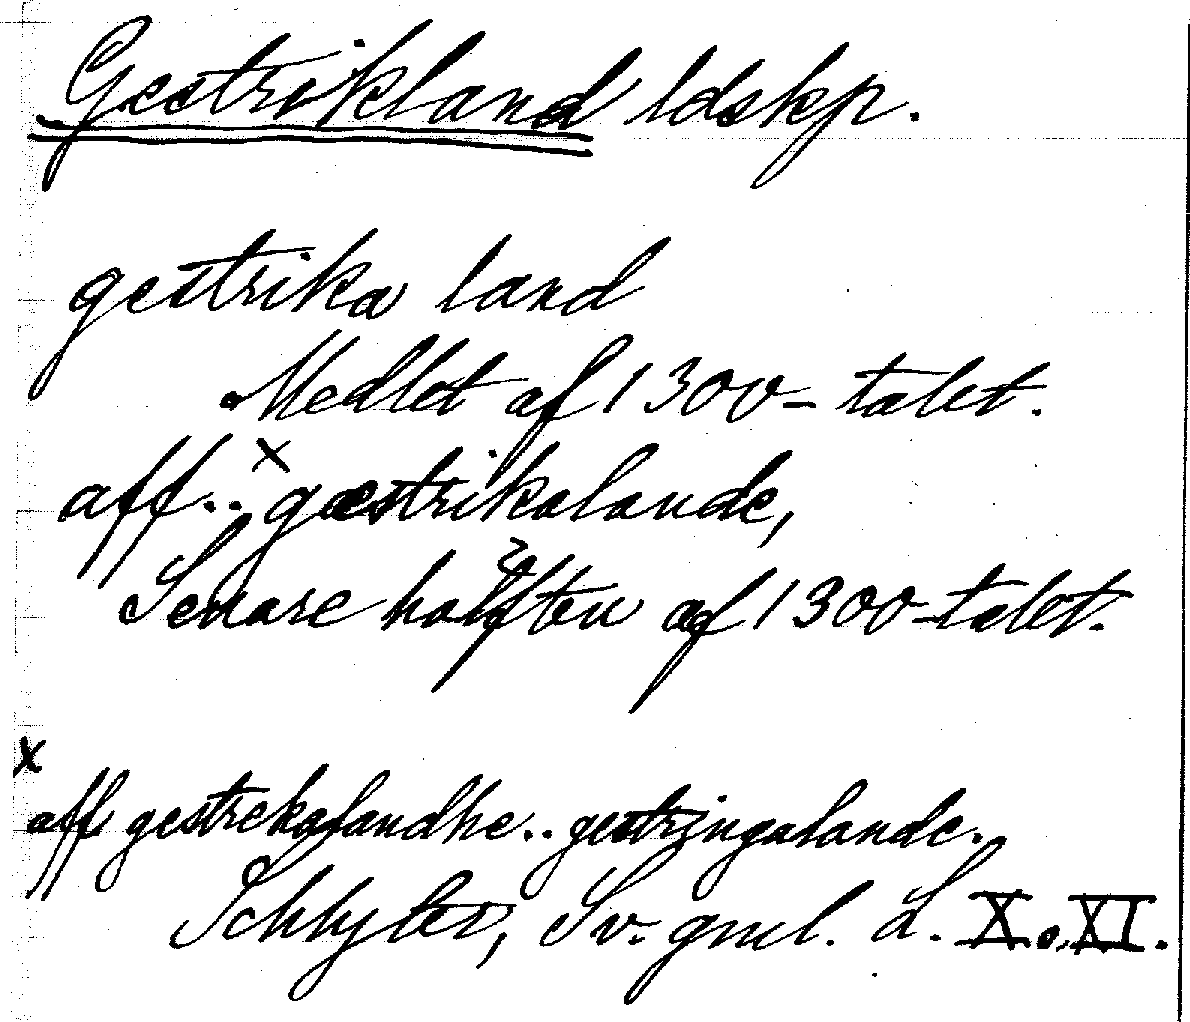 Gestrikland ldskp.
gestrika land
Medlet af 1300-talet.
aff.. x gæstrikalande,
Senare hälften af 1300-talet.
x
aff gestrekalandhe.. gestringalande.
Schlyter, Sv. gml. L. X. o. XI.